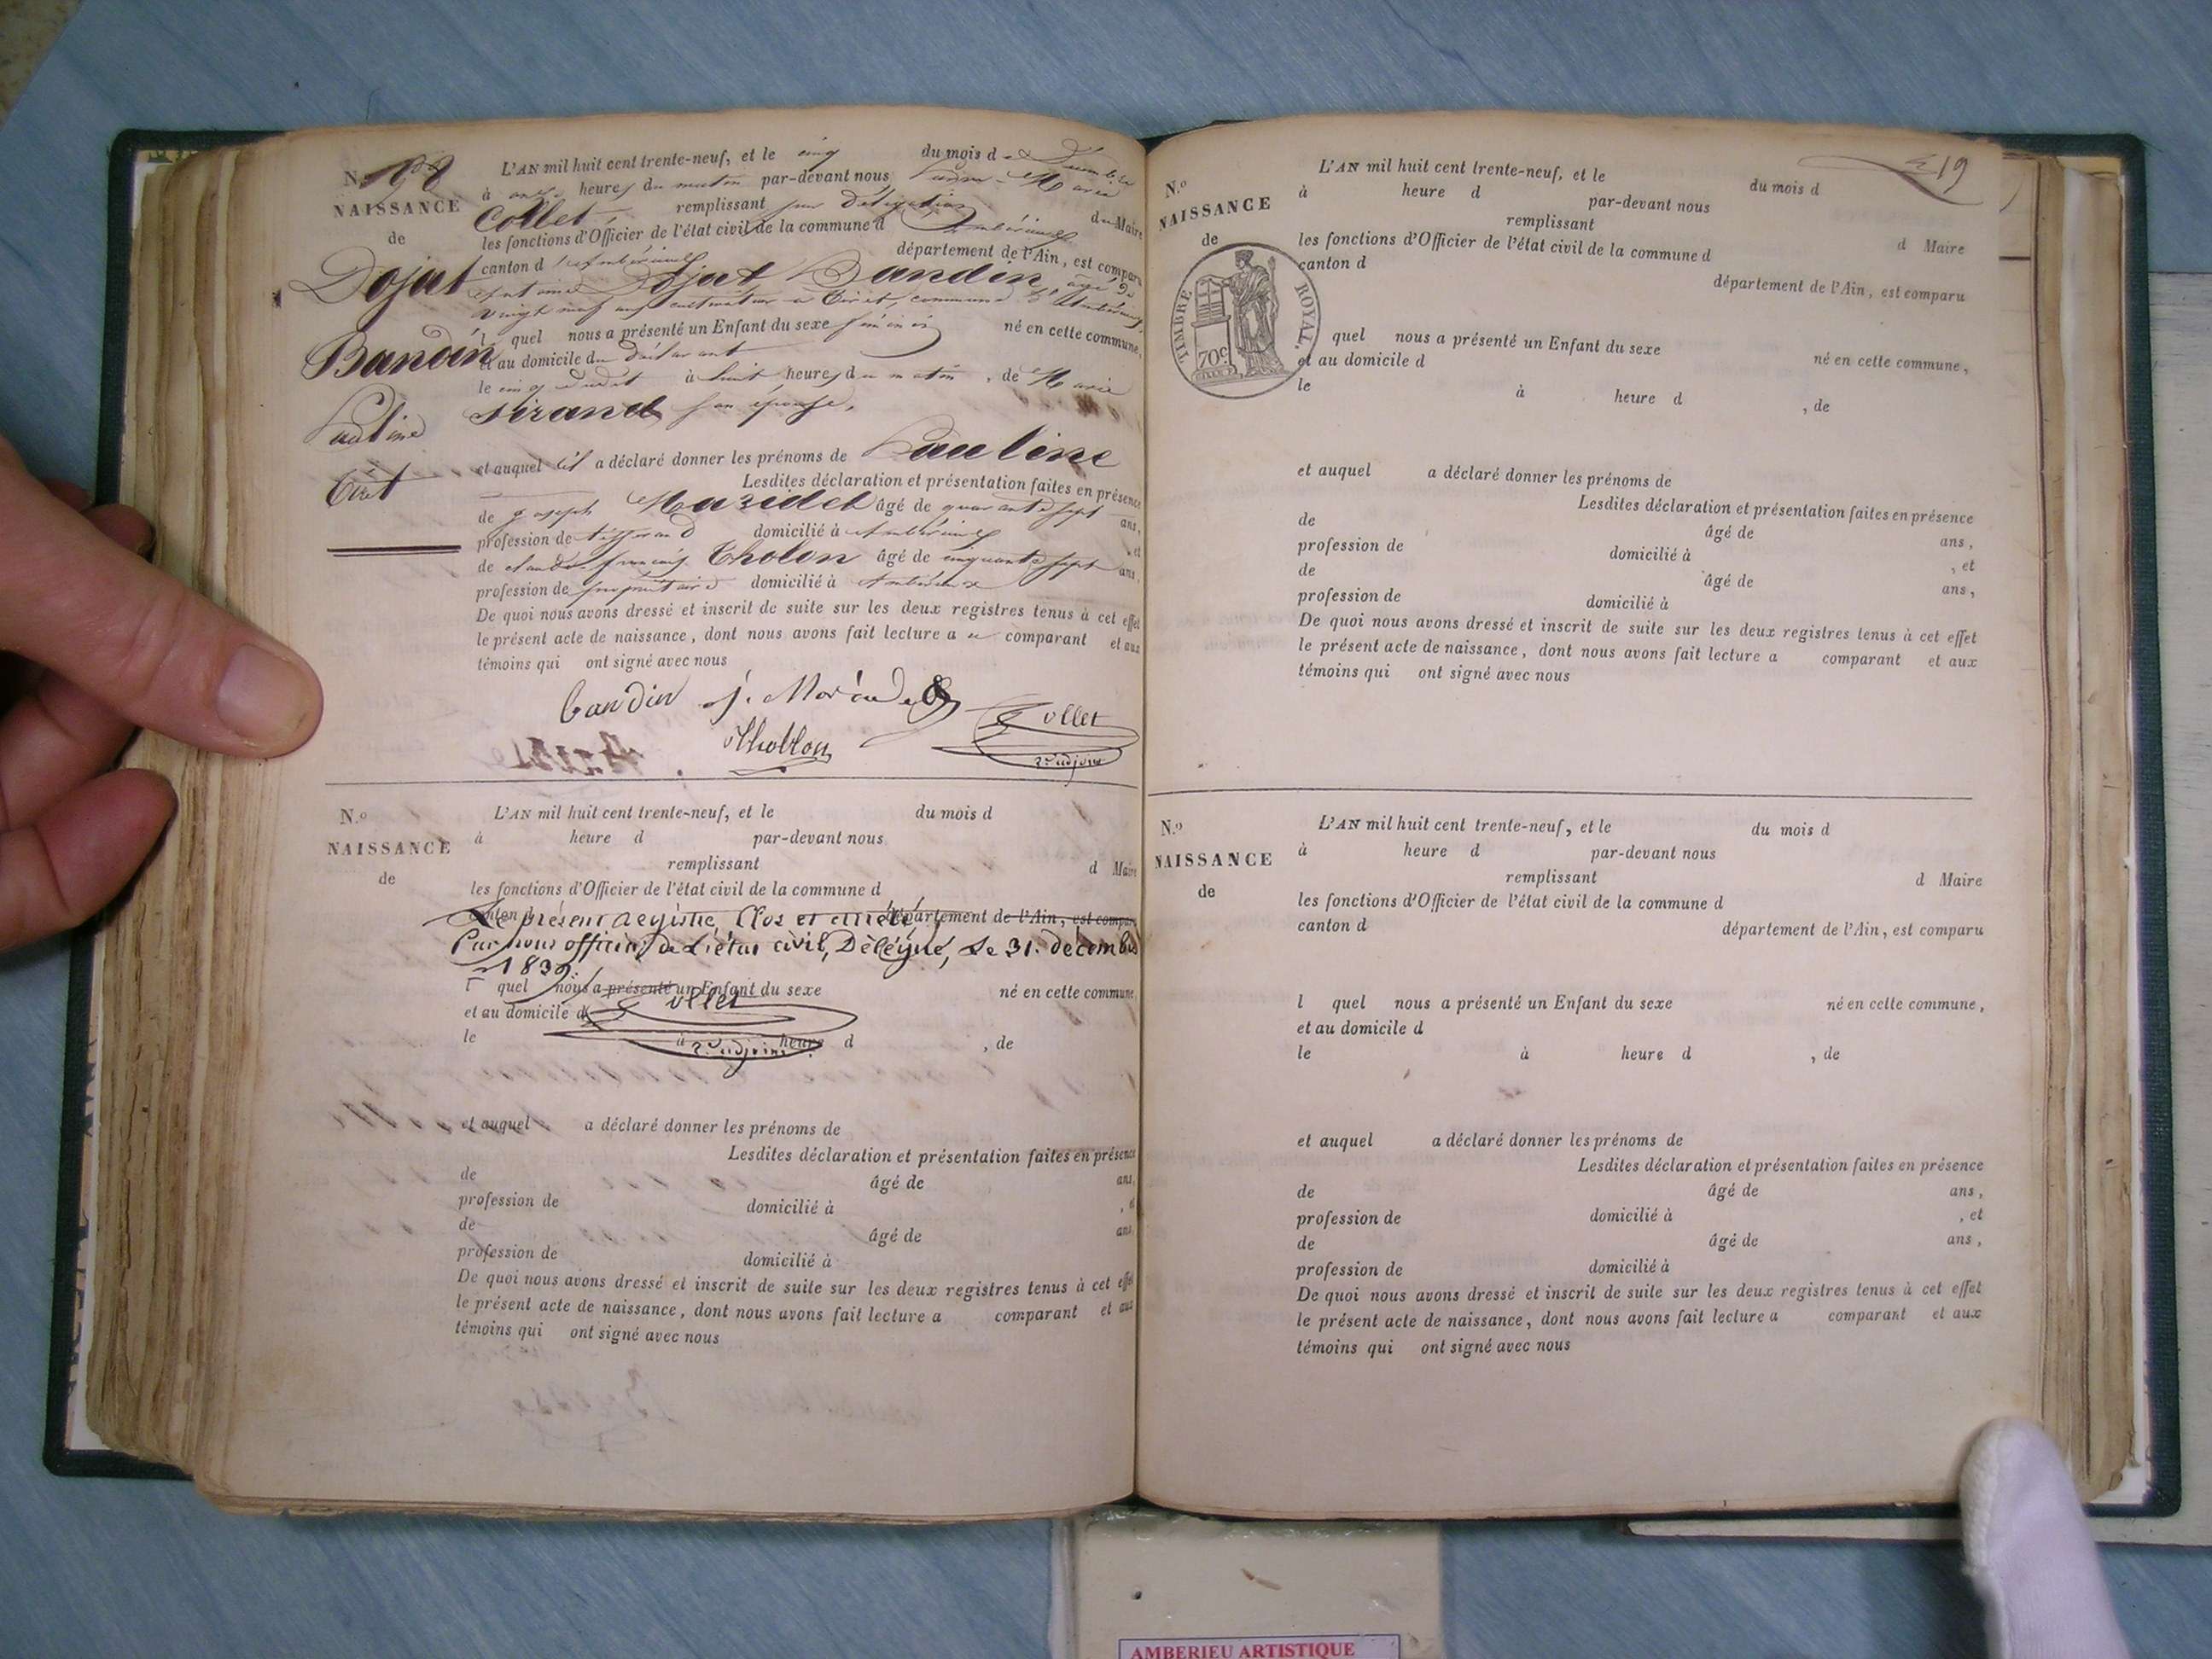 N.º
L'AN mil huit cent trente-neuf, et le cinq du mois d
à onze heures du matin par-devant nous Marie
NAISSANCE
Collet remplissant par délégation du Maire
de
les fonctions d'Officier de l'état civil de la commune d
canton d département de l'Ain, est comparu
Dojat
Antoine Dojat Bandin, âgé de
vingt neuf ans cultivateur à Tiret, commune d
Bandin
l quel nous a présenté un Enfant du sexe féminin né en cette commune,
et au domicile du déclarant
le cinq dudit à huit heures du matin, de Marie
Pauline
Sirand son épouse,
Tiret
et auquel il a déclaré donner les prénoms de Pauline
Lesdites déclaration et présentation faites en présence
de joseph âgé de quarante sept ans,
profession de tisserand domicilié à , et
de claude françois Tholon âgé de cinquante sept ans,
profession de propriétaire domicilié à
De quoi nous avons dressé et inscrit de suite sur les deux registres tenus à cet effet
le présent acte de naissance, dont nous avons fait lecture au comparant et aux
témoins qui ont signé avec nous
bandin j.
Collet
Thollon
2e adjoint
N.º
L'AN mil huit cent trente-neuf, et le du mois d
NAISSANCE
à heure d par-devant nous
de
remplissant d Maire
les fonctions d'Officier de l'état civil de la commune d
canton d département de l'Ain, est comparu
Le présent Registre, Clos et arrêté,
Par nous officier de l'état civil, Délégué, Le 31. décembre
1839.
l quel nous a présenté un Enfant du sexe né en cette commune,
Collet
et au domicile d
le à heure d , de
2e adjoint
et auquel a déclaré donner les prénoms de
Lesdites déclaration et présentation faites en présence
de âgé de ans,
profession de domicilié à , et
de âgé de ans,
profession de domicilié à
De quoi nous avons dressé et inscrit de suite sur les deux registres tenus à cet effet
le présent acte de naissance, dont nous avons fait lecture a comparant et aux
témoins qui ont signé avec nous
19
N.º
L'AN mil huit cent trente-neuf, et le du mois d
NAISSANCE
à heure d par-devant nous
de
remplissant d Maire
les fonctions d'Officier de l'état civil de la commune d
canton d département de l'Ain, est comparu
TIMBRE ROYAL.
70c
l quel nous a présenté un Enfant du sexe né en cette commune,
et au domicile d
le à heure d , de
et auquel a déclaré donner les prénoms de
Lesdites déclaration et présentation faites en présence
de âgé de ans,
profession de domicilié à , et
de âgé de ans,
profession de domicilié à
De quoi nous avons dressé et inscrit de suite sur les deux registres tenus à cet effet
le présent acte de naissance, dont nous avons fait lecture a comparant et aux
témoins qui ont signé avec nous
N.º
L'AN mil huit cent trente-neuf, et le du mois d
NAISSANCE
à heure d par-devant nous
de
remplissant d Maire
les fonctions d'Officier de l'état civil de la commune d
canton d département de l'Ain, est comparu
l quel nous a présenté un Enfant du sexe né en cette commune,
et au domicile d
le à heure d , de
et auquel a déclaré donner les prénoms de
Lesdites déclaration et présentation faites en présence
de âgé de ans,
profession de domicilié à , et
de âgé de ans,
profession de domicilié à
De quoi nous avons dressé et inscrit de suite sur les deux registres tenus à cet effet
le présent acte de naissance, dont nous avons fait lecture a comparant et aux
témoins qui ont signé avec nous
AMBERIEU ARTISTIQUE